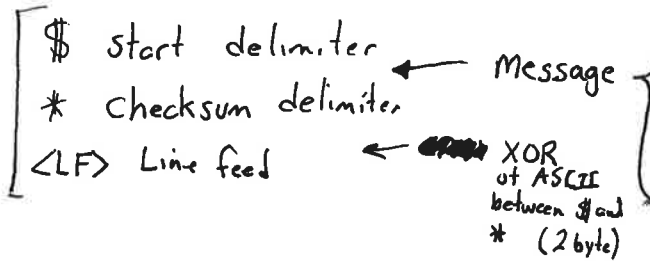 $ start delimiter
Message
* checksum delimiter
<LF> Line feed
XOR
of ASCII
between $ and
* (2 byte)